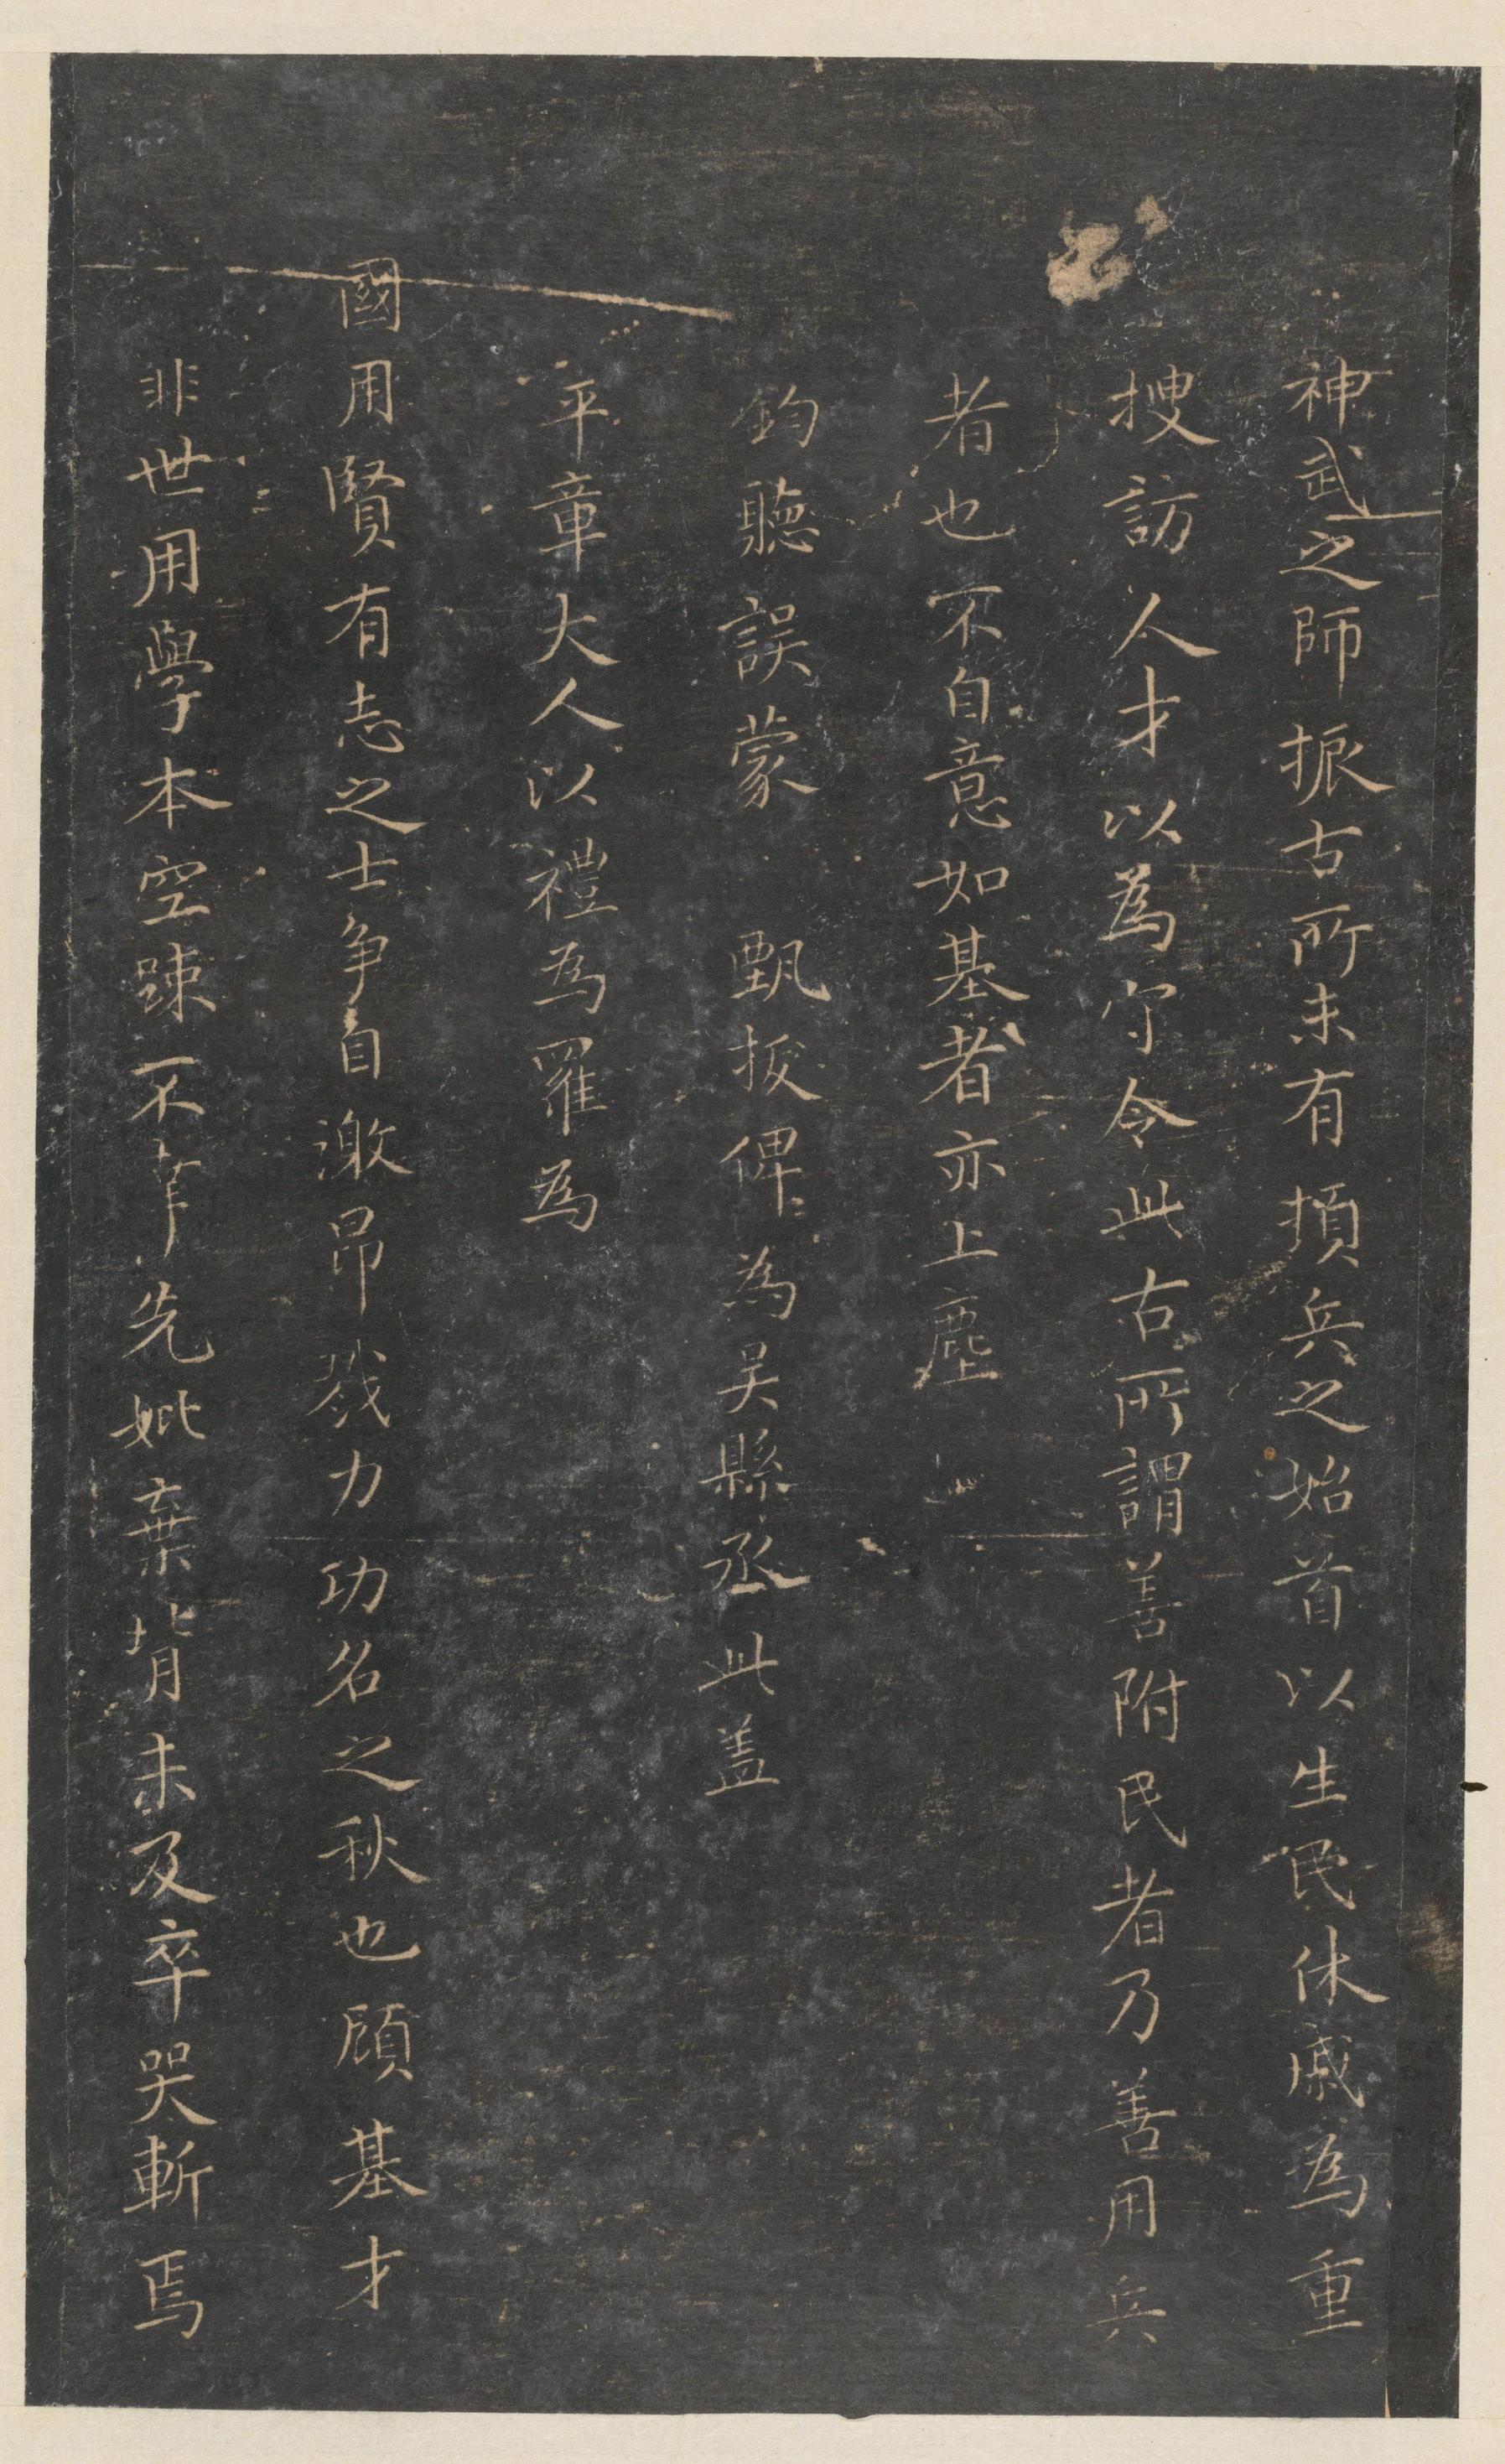 神武之師振古所未有損兵之始首以生民休戚為重
搜訪人才以為守令此古所謂善附民者乃善用兵
者也不自意如基者亦上塵
鈞聽誤蒙 甄拔俾為吴縣丞此蓋
平章大人以禮為羅為
國用賢有志之士争自激昂戮力功名之秋也顧基才
非世用學本空踈不幸先妣棄背未及卒哭斬焉